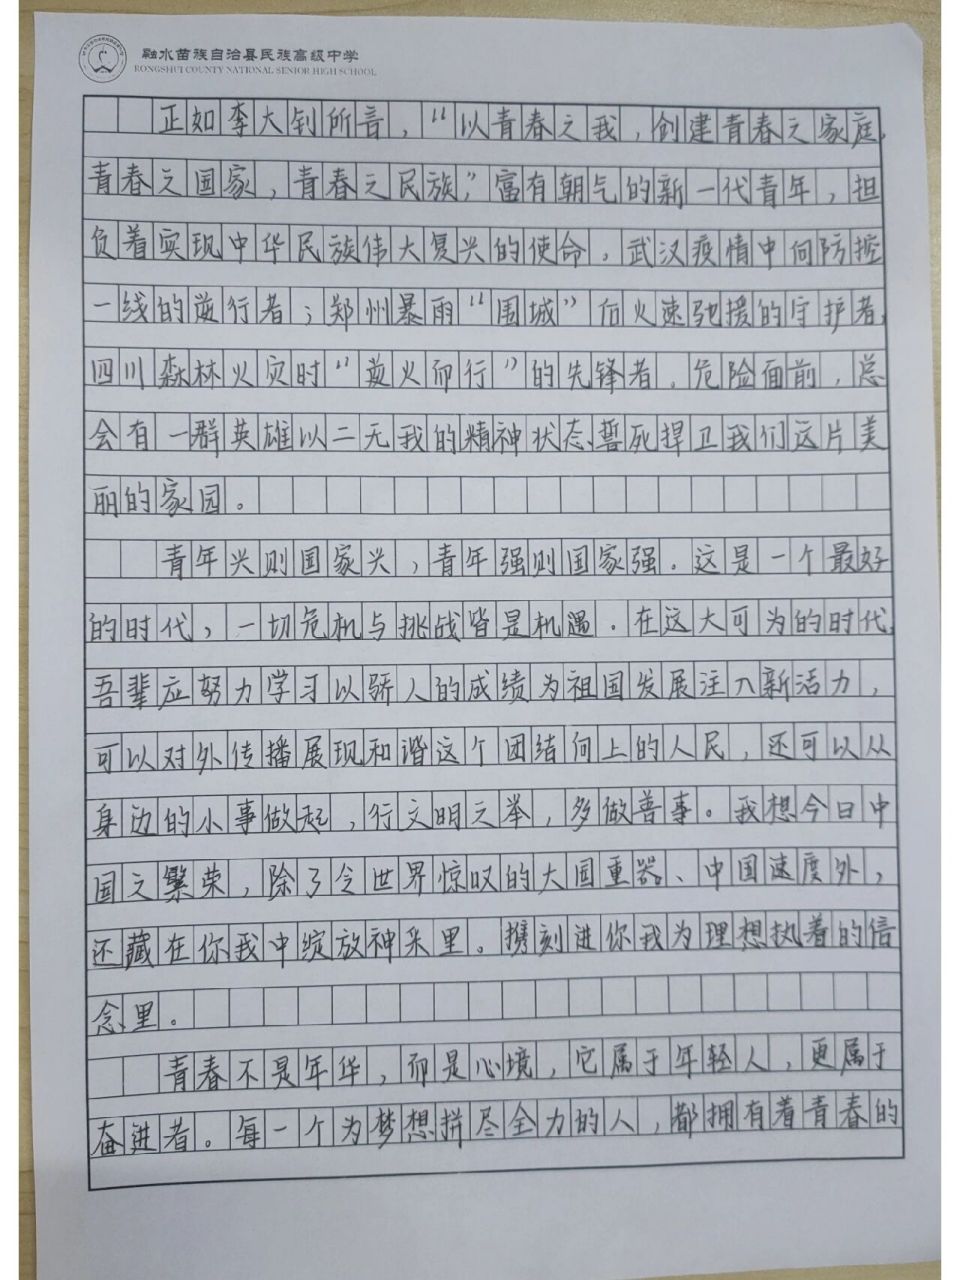 融水苗族自治县民族高级中学
RONGSHUI COUNTY NATIONAL SENIOR HIGH SCHOOL
正如李大钊所言，“以青春之我，创建青春之家庭，
青春之国家，青春之民族，”富有朝气的新一代青年，担
负着实现中华民族伟大复兴的使命。武汉疫情中向防控
一线的逆行者；郑州暴雨“围城”后火速驰援的守护者，
四川森林火灾时“蹈火而行”的先锋者。危险面前，总
会有一群英雄以二无我的精神状态誓死捍卫我们这片美
丽的家园。
青年兴则国家兴，青年强则国家强。这是一个最好
的时代，一切危机与挑战皆是机遇。在这大可为的时代，
吾辈应努力学习以骄人的成绩为祖国发展注入新活力，
可以对外传播展现和谐这个团结向上的人民，还可以从
身边的小事做起，行文明之举，多做善事。我想今日中
国之繁荣，除了令世界惊叹的大国重器、中国速度外，
还藏在你我中绽放神采里。镌刻进你我为理想执着的信
念里。
青春不是年华，而是心境，它属于年轻人，更属于
奋进者。每一个为梦想拼尽全力的人，都拥有着青春的